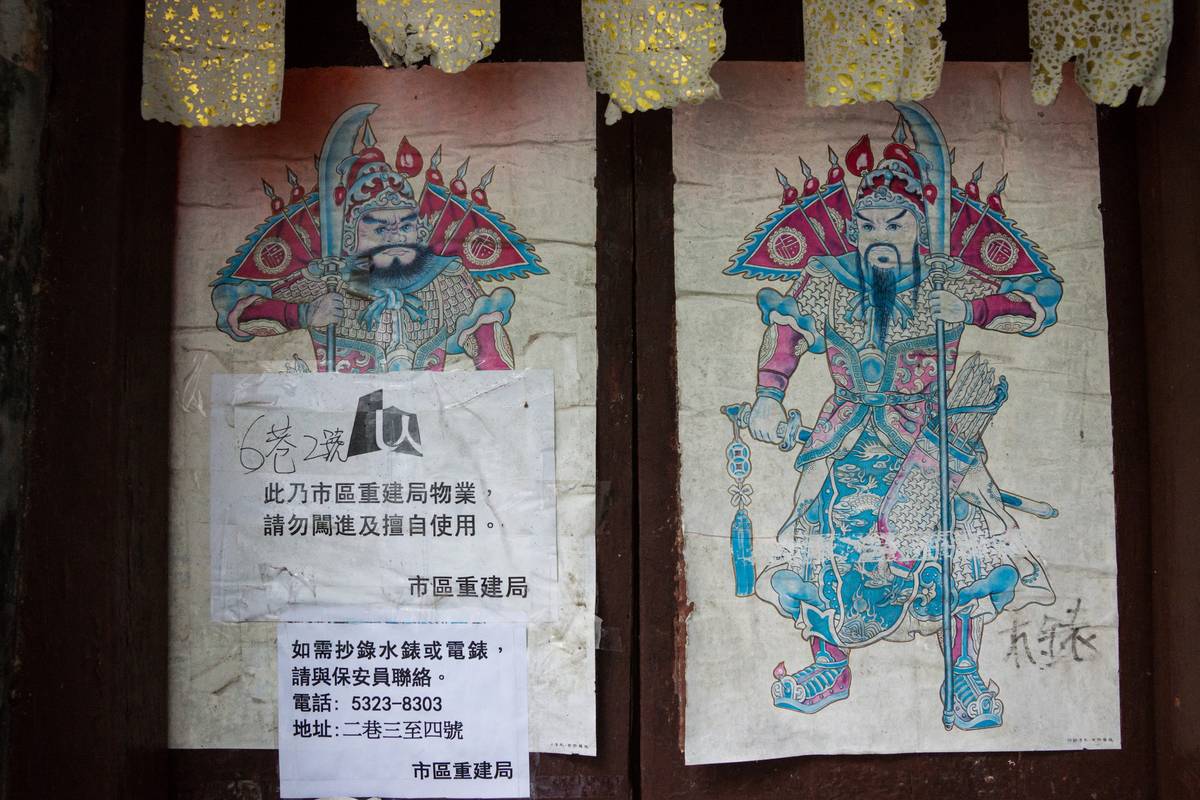 6巷2號
此乃市區重建局物業，
請勿闖進及擅自使用。
市區重建局
如需抄錄水錶或電錶，
請與保安員聯絡。
電話: 5323-8303
地址:二巷三至四號
市區重建局
福
福
福
福